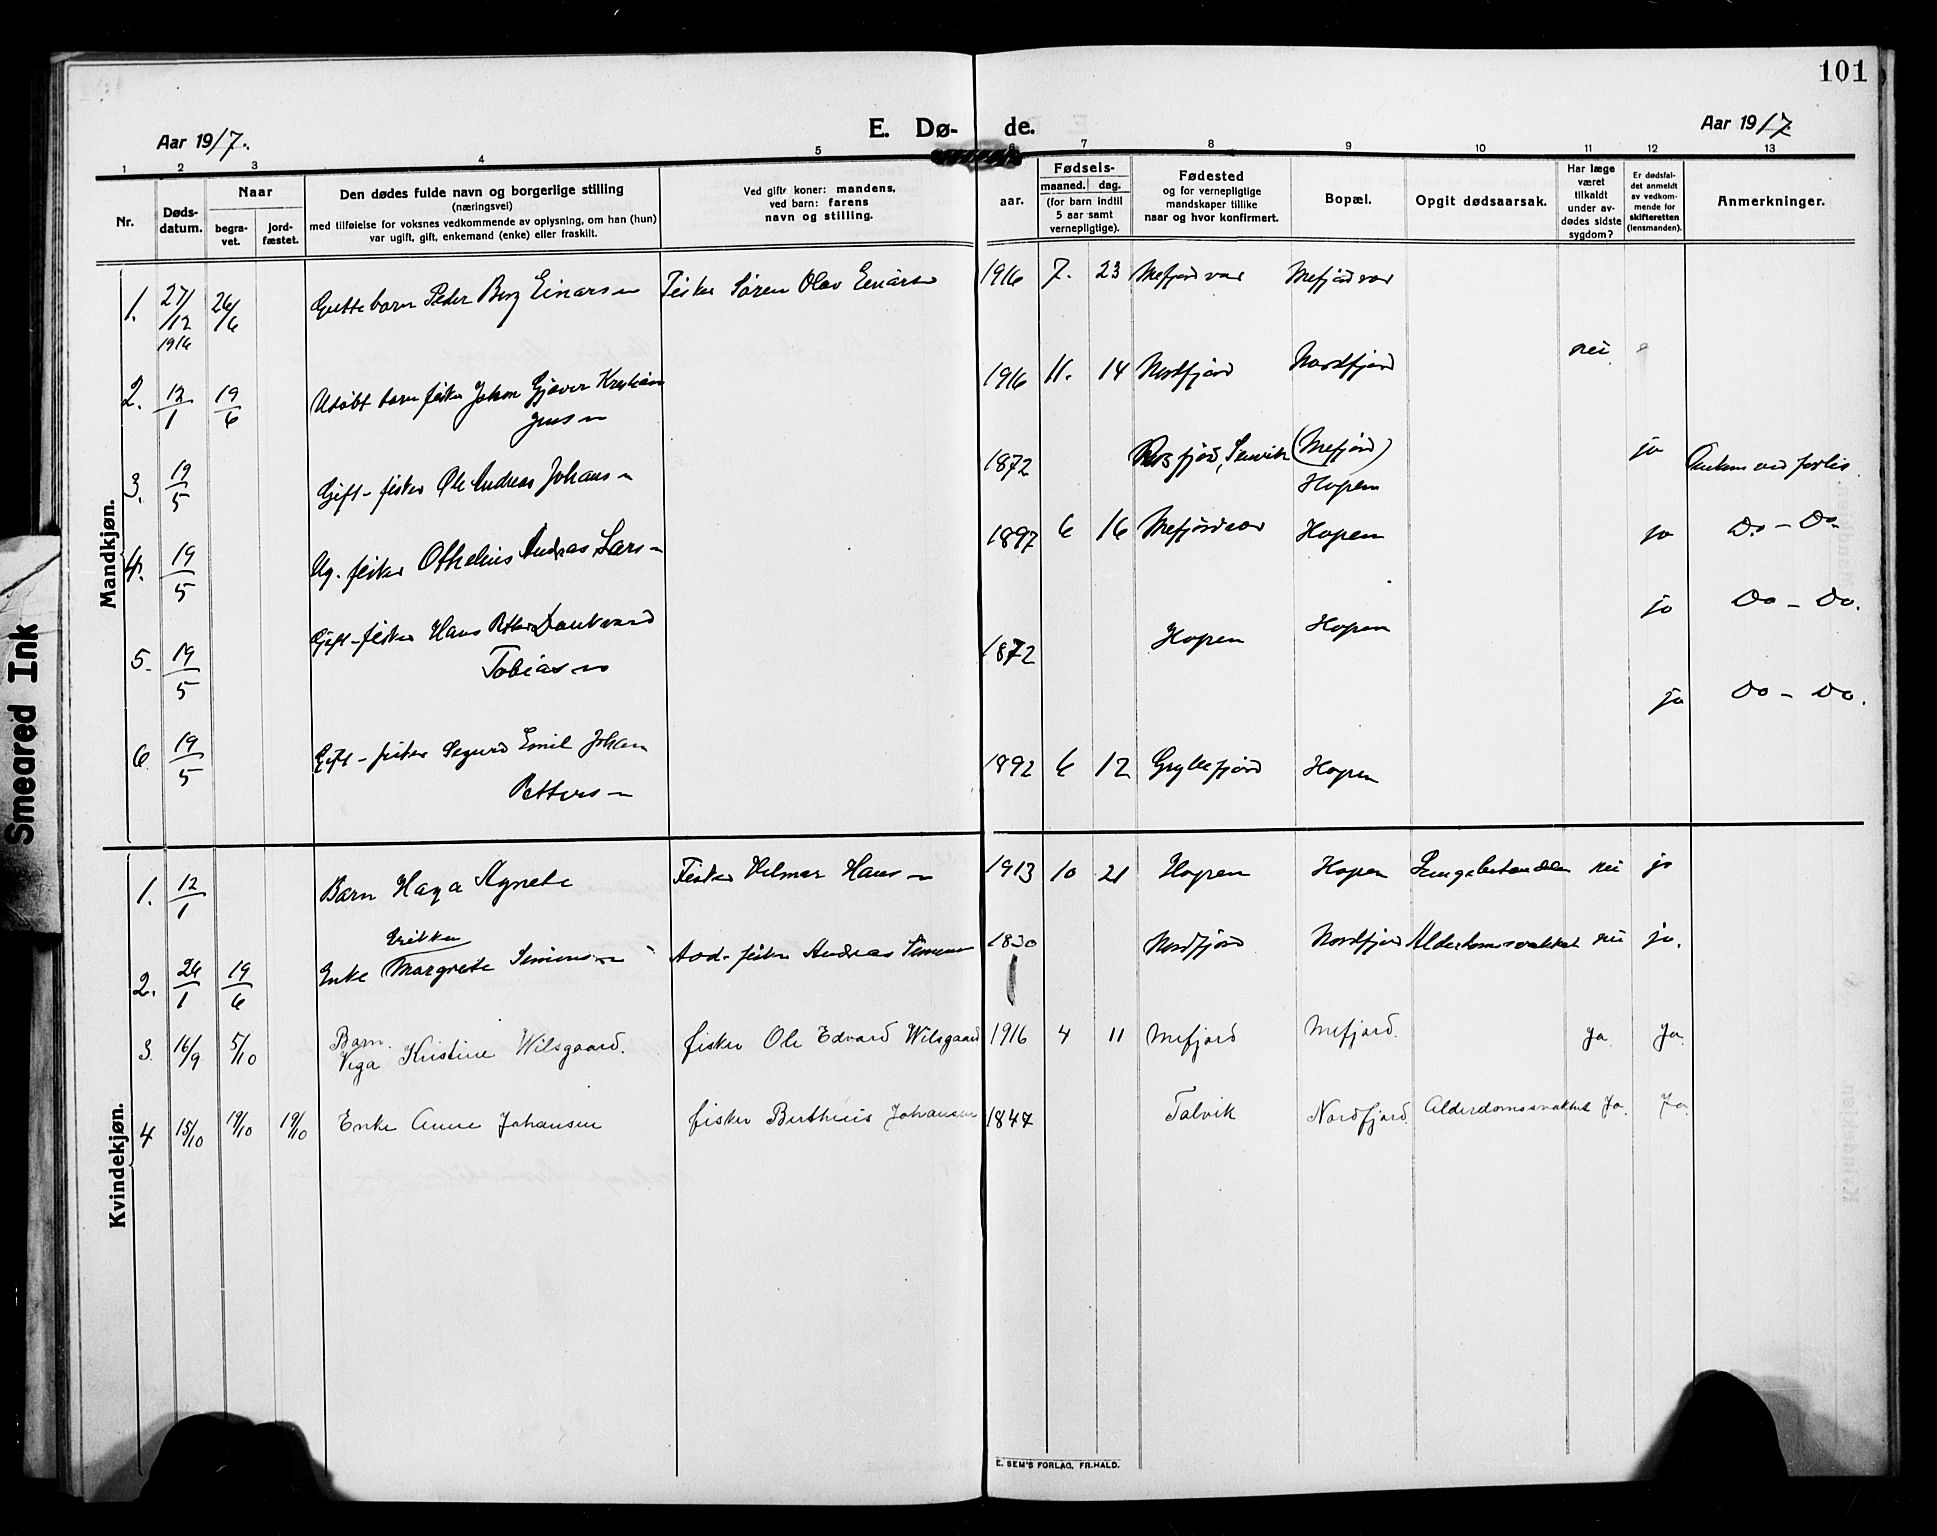 101
Aar 1917.
E. Dø- de.
Aar 1917.
1 2 3 4 5 6 7 8 9 10 11 12 13
Nr.
Døds-
datum.
Naar
begra-
vet.
jord-
fæstet.
Den dødes fulde navn og borgerlige stilling
(næringsvei)
med tilføielse for voksnes vedkommende av oplysning, om han (hun)
var ugift, gift, enkemand (enke) eller fraskilt.
Ved gifte koner: mandens,
ved barn: farens
navn og stilling.
aar.
Fødsels-
maaned. dag.
(for barn indtil
5 aar samt
vernepligtige).
Fødested
og for vernepligtige
mandskaper tillike
naar og hvor konfirmert.
Bopæl.
Opgit dødsaarsak.
Har læge
været
tilkaldt
under av-
dødes sidste
sygdom?
Er dødsfal-
det anmeldt
av vedkom-
mende for
skifteretten
(lensmanden).
Anmerkninger.
Mandkjøn.
1. 27/12 1916 26/6 Guttebarn Peder Berg Einarsen Fisker Søren Olav Einarsen 1916 7. 23 Mefjordvær Mefjordvær
2. 12/1 19/6 Udøbt barn fisker Johan Gjæver Kristian
Jensen 1916 11. 14 Nordfjord Nordfjord nei
3. 19/5 Gift fisker Ole Andreas Johansen 1872 fjord, (Mefjord)
Hopen ja Omkom ved forlis.
4. 19/5 Ug. fisker Othelius Andreas Larsen 1897 6 16 Mefjordvær Hopen ja Do - Do.
5. 19/5 Gift fisker Hans Petter Dankvard
Tobiassen 1872 Hopen Hopen ja Do - Do.
6 19/5 Gift fisker Sigurd Emil Johan
Pettersen 1892 6 12 Gryllefjord Hopen ja Do - Do.
Kvindekjøn.
1. 12/1 Barn Haga Agnete Fisker Hilmar Hansen 1913 10 21 Hopen Hopen Lungebetændelse nei ja
2. 26/1 19/6 Enke Margrete Simonsen Avd. fisker Andreas Simonsen 1830 Nordfjord Nordfjord Alderdomssvakhet nei ja.
3. 16/9 5/10 Barn.
Vega Kristine Wilsgaard. fisker Ole Edvard Wilsgaard 1916 4 11 Mefjord Mefjord. Ja. Ja.
4 15/10 19/10 19/10 Enke Anne Johansen fisker Berthius Johansen 1847 Talvik Nordfjord. Alderdomssvakhet Ja. Ja.
E. SEM'S FORLAG, FR.HALD.
Smeared Ink